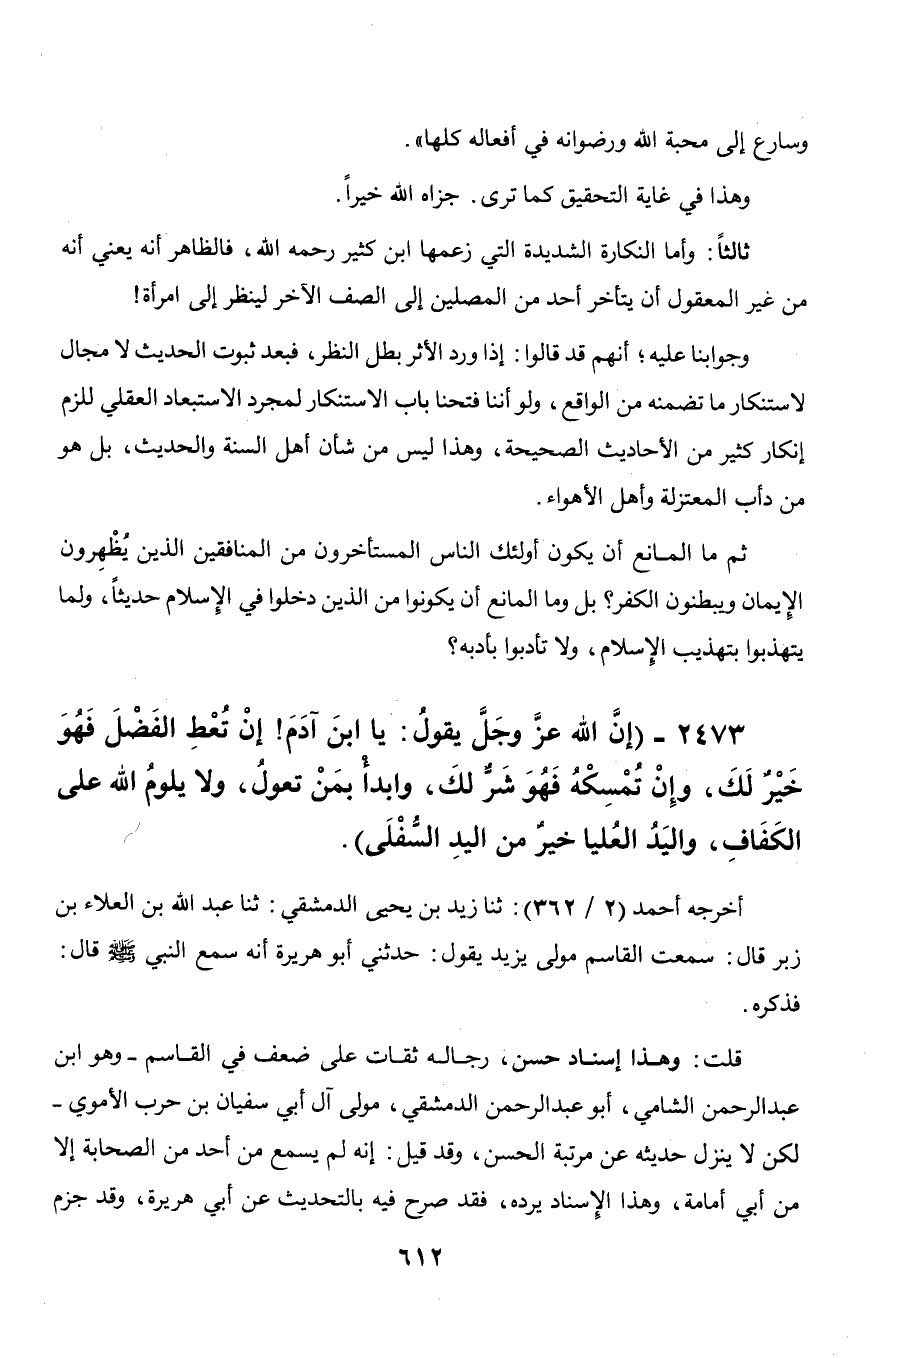 وسارع إلى محبة الله ورضوانه في أفعاله كلها» .
وهذا في غاية التحقيق كما ترى . جزاه الله خيراً .
ثالثاً : وأما النكارة الشديدة التي زعمها ابن كثير رحمه الله ، فالظاهر أنه يعني أنه
من غير المعقول أن يتأخر أحد من المصلين إلى الصف الآخر لينظر إلى امرأة !
وجوابنا عليه ؛ أنهم قد قالوا : إذا ورد الأثر بطل النظر ، فبعد ثبوت الحديث لا مجال
لاستنكار ما تضمنه من الواقع ، ولو أننا فتحنا باب الاستنكار لمجرد الاستبعاد العقلي للزم
إنكار كثير من الأحاديث الصحيحة ، وهذا ليس من شأن أهل السنة والحديث ، بل هو
من دأب المعتزلة وأهل الأهواء .
ثم ما المانع أن يكون أولئك الناس المستأخرون من المنافقين الذين يُظْهِرون
الإيمان ويبطنون الكفر ؟ بل وما المانع أن يكونوا من الذين دخلوا في الإسلام حديثاً ، ولما
يتهذبوا بتهذيب الإسلام ، ولا تأدبوا بأدبه ؟
٢٤٧٣ - (إنَّ الله عزَّ وجَلَّ يقولُ : يا ابنَ آدَمَ ! إنْ تُعْطِ الفَضْلَ فَهُوَ
خَيْرٌ لَكَ ، وإنْ تُمْسِكْهُ فَهُوَ شَرٌّ لكَ ، وابدأْ بمَنْ تعولُ ، ولا يلومُ الله على
الكَفَافِ ، واليَدُ العُليا خيرٌ من اليدِ السُّفْلَى) .
أخرجه أحمد (٢ / ٣٦٢) : ثنا زيد بن يحيى الدمشقي : ثنا عبد الله بن العلاء بن
زبر قال : سمعت القاسم مولى يزيد يقول : حدثني أبو هريرة أنه سمع النبي ﷺ قال :
فذكره .
قلت : وهذا إسناد حسن ، رجاله ثقات على ضعف في القاسم - وهو ابن
عبدالرحمن الشامي ، أبو عبدالرحمن الدمشقي ، مولى آل أبي سفيان بن حرب الأموي -
لكن لا ينزل حديثه عن مرتبة الحسن ، وقد قيل : إنه لم يسمع من أحد من الصحابة إلا
من أبي أمامة ، وهذا الإسناد يرده ، فقد صرح فيه بالتحديث عن أبي هريرة ، وقد جزم
٦١٢